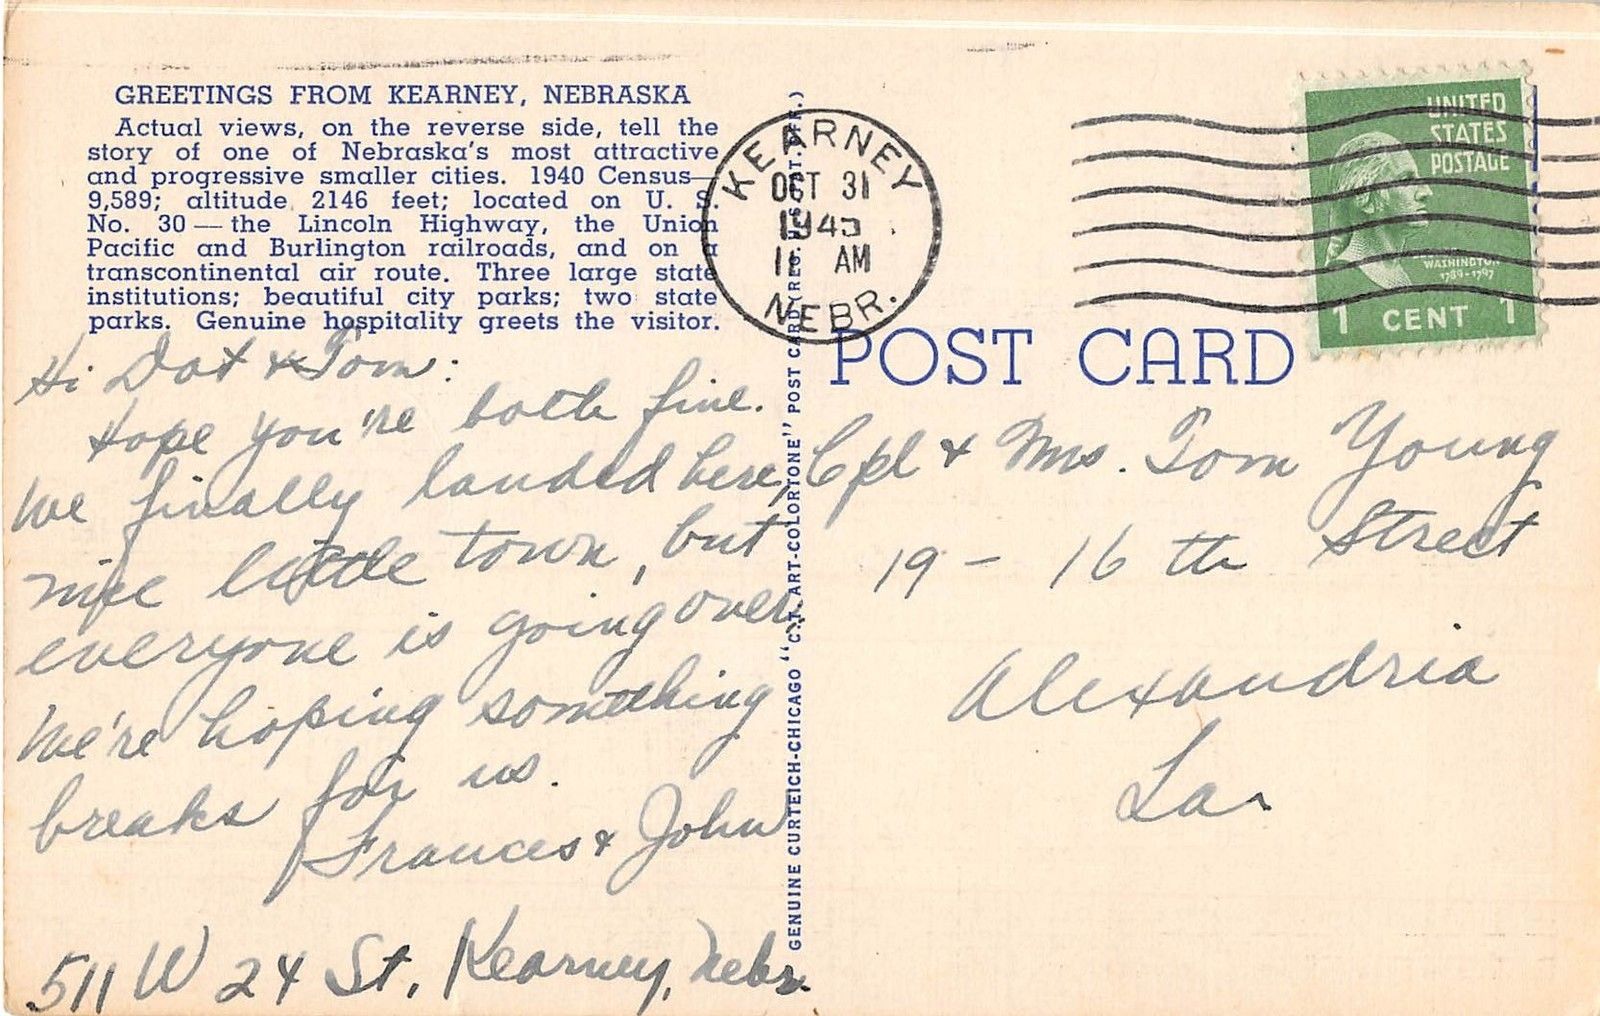 GREETINGS FROM KEARNEY, NEBRASKA
Actual views, on the reverse side, tell the
story of one of Nebraska's most attractive
and progressive smaller cities. 1940 Census—
9,589; altitude 2146 feet; located on U. S.
No. 30 — the Lincoln Highway, the Union
Pacific and Burlington railroads, and on a
transcontinental air route. Three large state
institutions; beautiful city parks; two state
parks. Genuine hospitality greets the visitor.
Hi Dot & Tom:
Hope you're both fine.
We finally landed here,
nice little town, but
everyone is going over.
We're hoping something
breaks for us.
Frances & John
511 W 24 St. Kearney, Nebr.
GENUINE CURTEICH-CHICAGO "C.T. ART-COLORTONE" POST CARD (REG. U.S. PAT. OFF.)
KEARNEY
OCT 31
1945
11 AM
NEBR.
UNITED
STATES
POSTAGE
WASHINGTON
1789-1797
1 CENT 1
POST CARD
Cpl & Mrs. Tom Young
19 - 16 th Street
Alexandria
La.